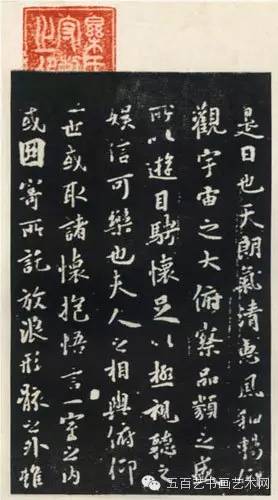 是日也天朗氣清惠風和暢仰
觀宇宙之大俯察品類之盛
所以遊目騁懷足以極視聽之
娛信可樂也夫人之相與俯仰
一世或取諸懷抱悟言一室之內
或因寄所託放浪形骸之外雖
五百艺书画艺术网